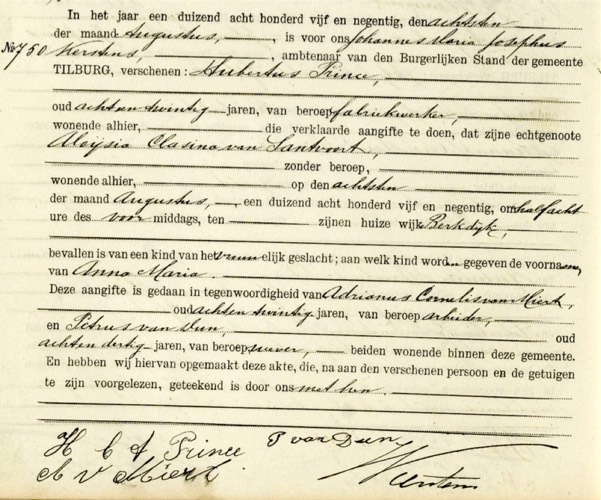 In het jaar een duizend acht honderd vijf en negentig, den achtsten
der maand Augustus, is voor ons Johannes Maria Josephus
No 750 Kerstens, ambtenaar van den Burgerlijken Stand der gemeente
TILBURG, verschenen: Hubertus Prince,
oud acht en twintig jaren, van beroep fabriekwerker,
wonende alhier, die verklaarde aangifte te doen, dat zijne echtgenoote
Aloÿsia Clasina van Santvoort,
zonder beroep,
wonende alhier, op den achtsten
der maand Augustus, een duizend acht honderd vijf en negentig, om half acht
ure des voor middags, ten zijnen huize wijk Berkdijk,
bevallen is van een kind van het vrouwelijk geslacht; aan welk kind word en gegeven de voornamen,
van Anna Maria.
Deze aangifte is gedaan in tegenwoordigheid van Adrianus Cornelis van Miert,
oud acht en twintig jaren, van beroep arbeider,
en Petrus van Dun, oud
acht en dertig jaren, van beroep wever, beiden wonende binnen deze gemeente.
En hebben wij hiervan opgemaakt deze akte, die, na aan den verschenen persoon en de getuigen
te zijn voorgelezen, geteekend is door ons met hen.
H C A Prince P van Dun
A v Miert. Kerstens